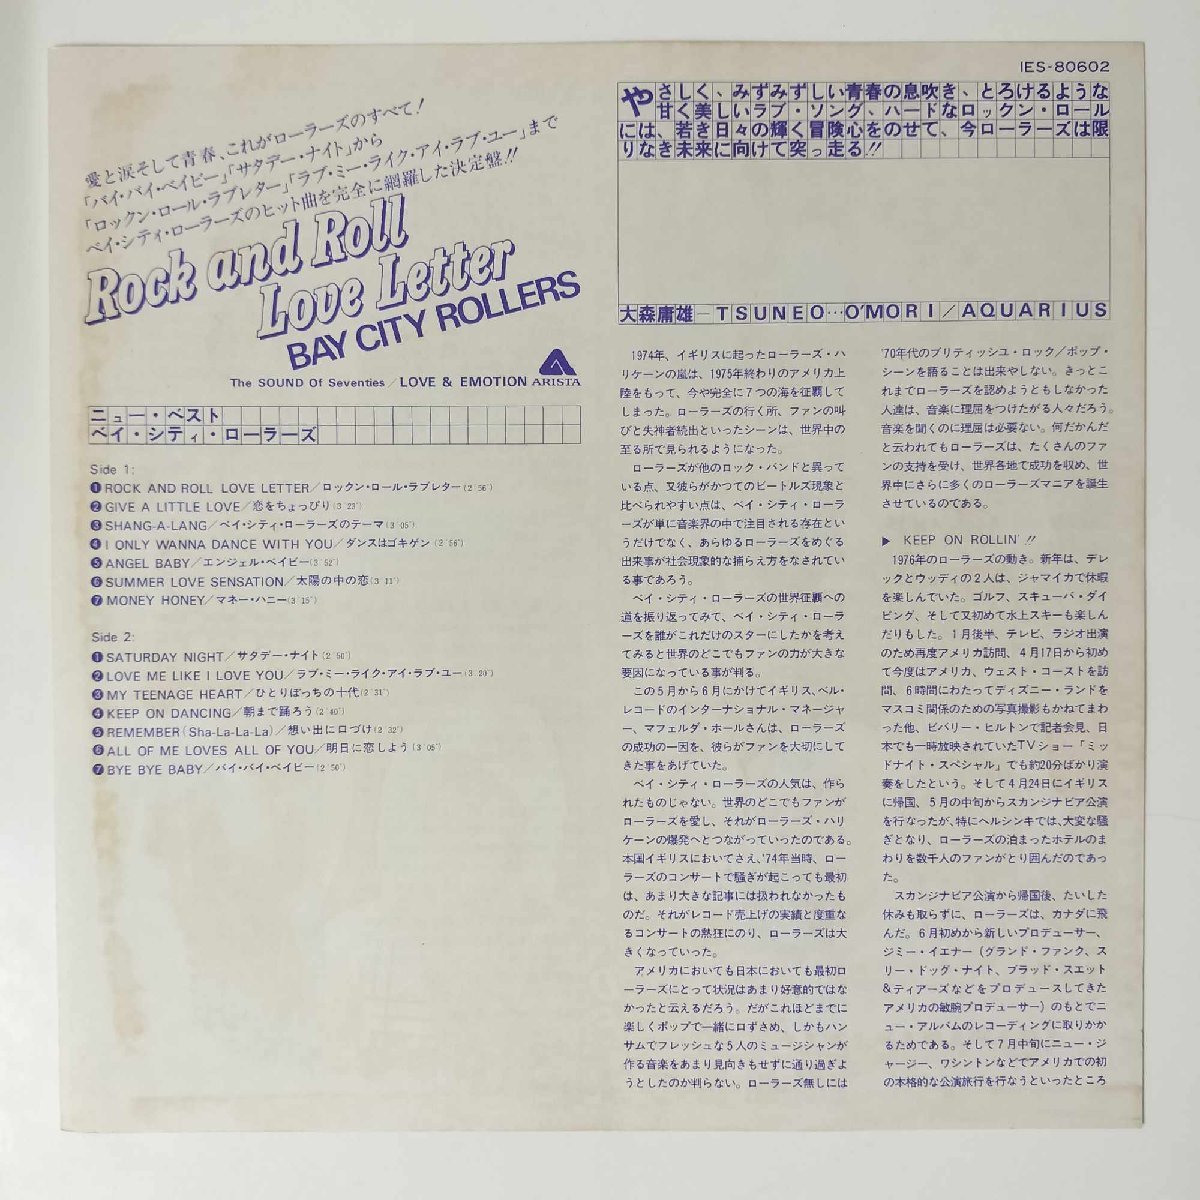 IES-80602
愛と涙そして青春、これがローラーズのすべて!
「バイ・バイ・ベイビー」「サタデー・ナイト」から
「ロックン・ロール・ラブレター」「ラブ・ミー・ライク・アイ・ラブ・ユー」まで
ベイ・シティ・ローラーズのヒット曲を完全に網羅した決定盤!!
Rock and Roll
Love Letter
BAY CITY ROLLERS
The SOUND Of Seventies/LOVE & EMOTION ARISTA
ニュー・ベスト
ベイ・シティ・ローラーズ
Side 1:
❶ROCK AND ROLL LOVE LETTER/ロックン・ロール・ラブレター(2′56″)
❷GIVE A LITTLE LOVE/恋をちょっぴり(3′23″)
❸SHANG-A-LANG/ベイ・シティ・ローラーズのテーマ(3′05″)
❹I ONLY WANNA DANCE WITH YOU/ダンスはゴキゲン(2′56″)
❺ANGEL BABY/エンジェル・ベイビー(3′52″)
❻SUMMER LOVE SENSATION/太陽の中の恋(3′11″)
❼MONEY HONEY/マネー・ハニー(3′15″)
Side 2:
❶SATURDAY NIGHT/サタデー・ナイト(2′50″)
❷LOVE ME LIKE I LOVE YOU/ラブ・ミー・ライク・アイ・ラブ・ユー(3′20″)
❸MY TEENAGE HEART/ひとりぼっちの十代(2′31″)
❹KEEP ON DANCING/朝まで踊ろう(2′40″)
❺REMEMBER(Sha-La-La-La)/想い出に口づけ(2′32″)
❻ALL OF ME LOVES ALL OF YOU/明日に恋しよう(3′05″)
❼BYE BYE BABY/バイ・バイ・ベイビー(2′50″)
やさしく、みずみずしい青春の息吹き、とろけるような
甘く美しいラブ・ソング、ハードなロックン・ロール
には、若き日々の輝く冒険心をのせて、今ローラーズは限
りなき未来に向けて突っ走る!!
大森庸雄―TSUNEO…O'MORI/AQUARIUS
1974年、イギリスに起ったローラーズ・ハ
リケーンの嵐は、1975年終わりのアメリカ上
陸をもって、今や完全に7つの海を征覇して
しまった。ローラーズの行く所、ファンの叫
びと失神者続出といったシーンは、世界中の
至る所で見られるようになった。
ローラーズが他のロック・バンドと異って
いる点、又彼らがかつてのビートルズ現象と
比べられやすい点は、ベイ・シティ・ローラ
ーズが単に音楽界の中で注目される存在とい
うだけでなく、あらゆるローラーズをめぐる
出来事が社会現象的な捕らえ方をなされてい
る事であろう。
ベイ・シティ・ローラーズの世界征覇への
道を振り返ってみて、ベイ・シティ・ローラ
ーズを誰がこれだけのスターにしたかを考え
てみると世界のどこでもファンの力が大きな
要因になっている事が判る。
この5月から6月にかけてイギリス、ベル・
レコードのインターナショナル・マネージャ
ー、マフェルダ・ホールさんは、ローラーズ
の成功の一因を、彼らがファンを大切にして
きた事をあげていた。
ベイ・シティ・ローラーズの人気は、作ら
れたものじゃない。世界のどこでもファンが
ローラーズを愛し、それがローラーズ・ハリ
ケーンの爆発へとつながっていったのである。
本国イギリスにおいてさえ、'74年当時、ロー
ラーズのコンサートで騒ぎが起こっても最初
は、あまり大きな記事には扱われなかったも
のだ。それがレコード売上げの実績と度重な
るコンサートの熱狂にのり、ローラーズは大
きくなっていった。
アメリカにおいても日本においても最初ロ
ーラーズにとって状況はあまり好意的ではな
かったと云えるだろう。だがこれほどまでに
楽しくポップで一緒に口ずさめ、しかもハン
サムでフレッシュな5人のミュージシャンが
作る音楽をあまり見向きもせずに通り過ぎよ
うとしたのか判らない。ローラーズ無しには
'70年代のブリティッシュ・ロック/ポップ・
シーンを語ることは出来やしない。きっとこ
れまでローラーズを認めようともしなかった
人達は、音楽に理屈をつけたがる人々だろう。
音楽を聞くのに理屈は必要ない。何だかんだ
と云われてもローラーズは、たくさんのファ
ンの支持を受け、世界各地で成功を収め、世
界中にさらに多くのローラーズマニアを誕生
させているのである。
▶ KEEP ON ROLLIN'!!
1976年のローラーズの動き。新年は、デレ
ックとウッディの2人は、ジャマイカで休暇
を楽しんでいた。ゴルフ、スキューバ・ダイ
ビング、そして又初めて水上スキーも楽しん
だりもした。1月後半、テレビ、ラジオ出演
のため再度アメリカ訪問、4月17日から初め
て今度はアメリカ、ウェスト・コーストを訪
問、6時間にわたってディズニー・ランドを
マスコミ関係のための写真撮影もかねてまわ
った他、ビバリー・ヒルトンで記者会見、日
本でも一時放映されていたTVショー「ミッ
ドナイト・スペシャル」でも約20分ばかり演
奏をしたという。そして4月24日にイギリス
に帰国、5月の中旬からスカンジナビア公演
を行なったが、特にヘルシンキでは、大変な騒
ぎとなり、ローラーズの泊まったホテルのま
わりを数千人のファンがとり囲んだのであっ
た。
スカンジナビア公演から帰国後、たいした
休みも取らずに、ローラーズは、カナダに飛
んだ。6月初めから新しいプロデューサー、
ジミー・イエナー(グランド・ファンク、ス
リー・ドッグ・ナイト、ブラッド・スエット
&ティアーズなどをプロデュースしてきた
アメリカの敏腕プロデューサー)のもとでニ
ュー・アルバムのレコーディングに取りかか
るためである。そして7月中旬にニュー・ジ
ャージー、ワシントンなどでアメリカでの初
の本格的な公演旅行を行なうといったところ